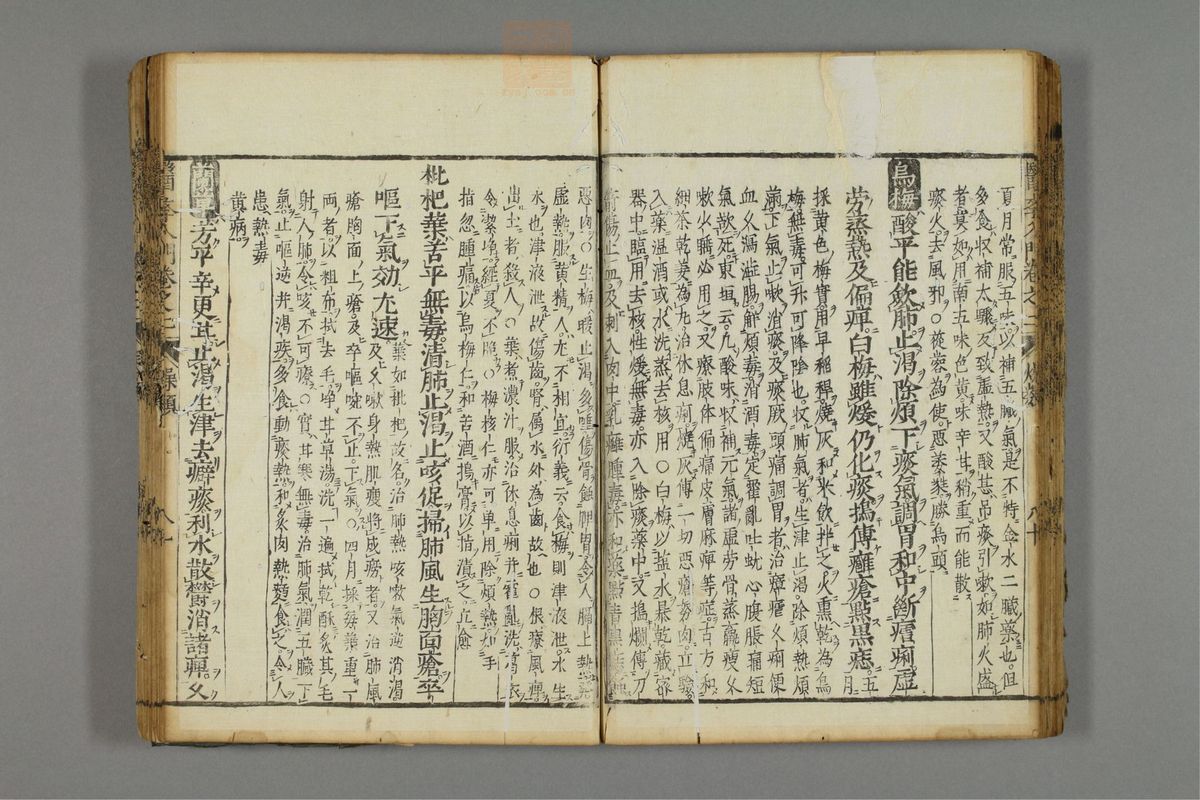 夏月常服五味以補五臟氣是不特金水二臟藥也但
多食收補太驟反致虛熱又酸甚吊痰引嗽如肺火盛
者莫如用南五味色黃味辛甘稍重而能散
痰火去風邪○蓯蓉為使惡萎蕤勝烏頭
烏梅酸平能歛肺止渴除煩下痰氣調胃和中斷瘧痢虛
勞蒸熱及偏痺白梅雖煖仍化痰搗傅癰瘡點黑痣五月
採黃色梅實用早稻稈燒灰和米飲拌之火熏乾為烏
梅無毒可升可降陰也收肺氣者生津止渴除煩熱煩
滿下氣止嗽消痰及痰厥頭痛調胃者治瘴瘧久痢便
血久瀉澁腸解煩毒消酒毒定霍亂吐蚘心腹脹痛短
氣欲死東垣云凡酸味收補元氣諸虛劳骨蒸羸瘦久
嗽少睡必用之又療肢体偏痛皮膚麻痺等症古方和
細茶乾姜為丸治休息痢燒灰傅一切惡瘡努肉立驗
入藥温酒或水洗蒸去核用○白梅以盐水暴乾藏密
器中臨用去核性煖無毒亦入除痰藥中又搗爛傅刀
箭傷止血及刺入肉中乳癰腫毒亦和藥點痣
惡肉○生梅暇止渴多唯傷骨蝕脾胃令人膈上熱
虛熱服黃精人尤不相宜衍義云食梅則津液泄水生
水也津液泄故傷齒腎属水外為齒故也○俍療風痺
出土者殺人○葉煮濃汁服治休息痢并霍亂洗葛衣
令潔净經夏不脆○梅核仁亦可单用除煩熱如手
指忽腫痛以烏梅仁和苦酒搗膏以指漬之立愈
枇杷葉苦平無毒清肺止渴止咳促掃肺風生胸面瘡卒
嘔下氣効尤速葉如枇杷故名治肺熱咳嗽氣逆消渴
及久嗽身熱肌瘦將成癆者又治肺風
瘡胸面上瘡及卒嘔啘不止下氣○四月採每葉重一
兩者以粗布拭去毛净甘草湯洗一遍拭乾酥炙其毛
射人肺令咳不可療○實甘寒無毒治肺氣潤五臟下
氣止嘔逆并渴疾多食動痰熱和炙肉熱麵食之令人
患熱毒
黃病